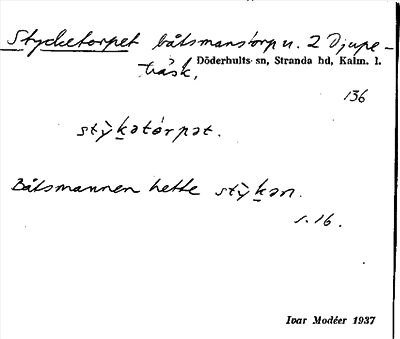 Stycketorpet båtsmanstorp u. 2 Djupe-
träsk, Döderhults sn, Stranda hd, Kalm. l.
136
stỳk̲ətórpət.
Båtsmannen hette stỳk̲ən.
s. 16.
Ivar Modéer 1937